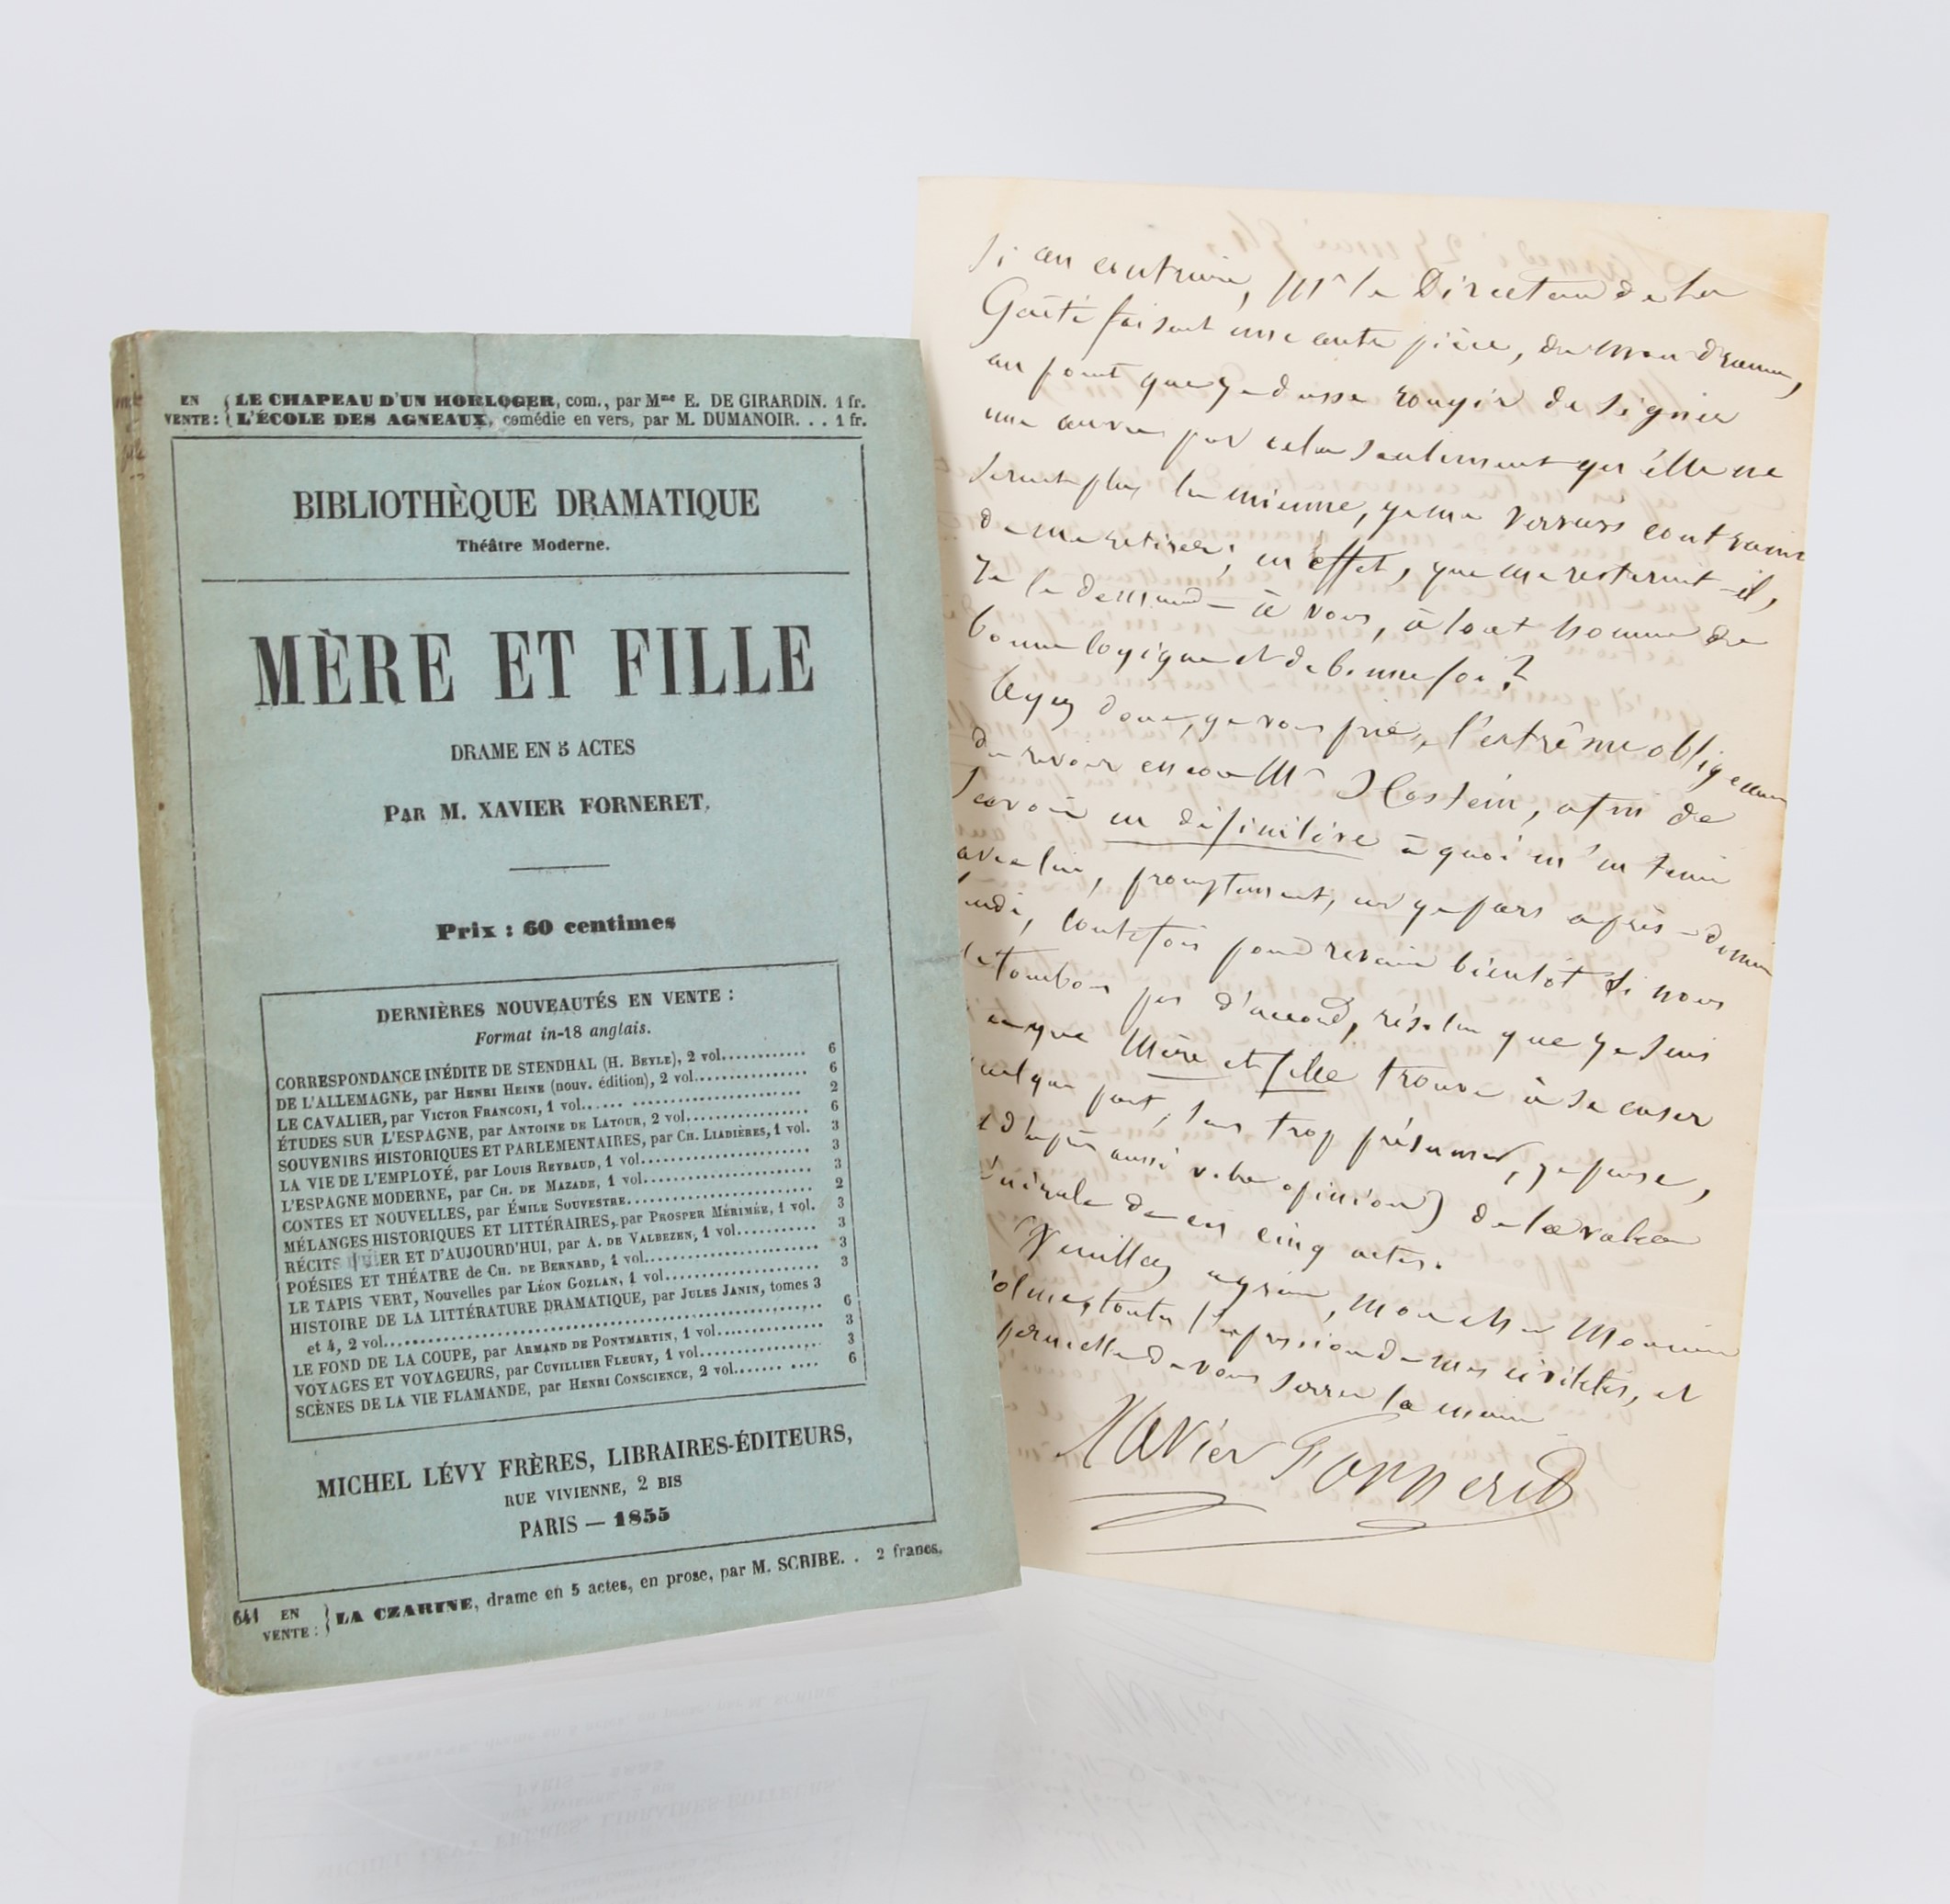 EN VENTE : { LE CHAPEAU D'UN HORLOGER, com., par Mme E. DE GIRARDIN. 1 fr.
L'ÉCOLE DES AGNEAUX, comédie en vers, par M. DUMANOIR. . . 1 fr.
BIBLIOTHÈQUE DRAMATIQUE
Théâtre Moderne.
MÈRE ET FILLE
DRAME EN 5 ACTES
PAR M. XAVIER FORNERET,
Prix : 60 centimes
DERNIÈRES NOUVEAUTÉS EN VENTE :
Format in-18 anglais.
CORRESPONDANCE INÉDITE DE STENDHAL (H. BEYLE), 2 vol............ 6
DE L'ALLEMAGNE, par HENRI HEINE (nouv. édition), 2 vol................ 6
LE CAVALIER, par VICTOR FRANCONI, 1 vol...... ...................... 2
ÉTUDES SUR L'ESPAGNE, par ANTOINE DE LATOUR, 2 vol................. 6
SOUVENIRS HISTORIQUES ET PARLEMENTAIRES, par CH. LIADIÈRES, 1 vol. 3
LA VIE DE L'EMPLOYÉ, par LOUIS REYBAUD, 1 vol....................... 3
L'ESPAGNE MODERNE, par CH. DE MAZADE, 1 vol....................... 3
CONTES ET NOUVELLES, par ÉMILE SOUVESTRE......................... 2
MÉLANGES HISTORIQUES ET LITTÉRAIRES, par PROSPER MÉRIMÉE, 1 vol. 3
RÉCITS D'HIER ET D'AUJOURD'HUI, par A. DE VALBEZEN, 1 vol........... 3
POÉSIES ET THÉATRE de CH. DE BERNARD, 1 vol....................... 3
LE TAPIS VERT, Nouvelles par LÉON GOZLAN, 1 vol.................... 3
HISTOIRE DE LA LITTÉRATURE DRAMATIQUE, par JULES JANIN, tomes 3
et 4, 2 vol........................................................ 6
LE FOND DE LA COUPE, par ARMAND DE PONTMARTIN, 1 vol.............. 3
VOYAGES ET VOYAGEURS, par CUVILLIER FLEURY, 1 vol................. 3
SCÈNES DE LA VIE FLAMANDE, par HENRI CONSCIENCE, 2 vol....... .... 6
MICHEL LÉVY FRÈRES, LIBRAIRES-ÉDITEURS,
RUE VIVIENNE, 2 BIS
PARIS — 1855
641 EN VENTE : } LA CZARINE, drame en 5 actes, en prose, par M. SCRIBE. . 2 francs.
Si au contraire, Mr le Directeur de la
Gaîté faisait une autre pièce, de mon drame,
au point que je dusse rougir de signer
une œuvre par cela seulement qu'elle ne
serait plus la mienne, je me verrais contraint
de me retirer ; en effet, que me resterait-il,
je le demande à vous, à tout homme de
bonne logique et de bonne foi ?
Ayez donc, je vous prie, l'extrême obligeance
de revoir encore Mr Hostein, afin de
savoir en définitive à quoi m'en tenir
avec lui, promptement, car je pars après-demain
lundi, toutefois pour revenir bientôt si nous
ne tombons pas d'accord, résolu que je suis
à ce que Mère et fille trouve à se caser
quelque part, sans trop présumer, je pense,
(et d'après aussi votre opinion) de la valeur
générale de ces cinq actes.
Veuillez agréer, mon cher Monsieur
toute l'expression de mes civilités, et
permettre de vous serrer la main
Xavier Forneret